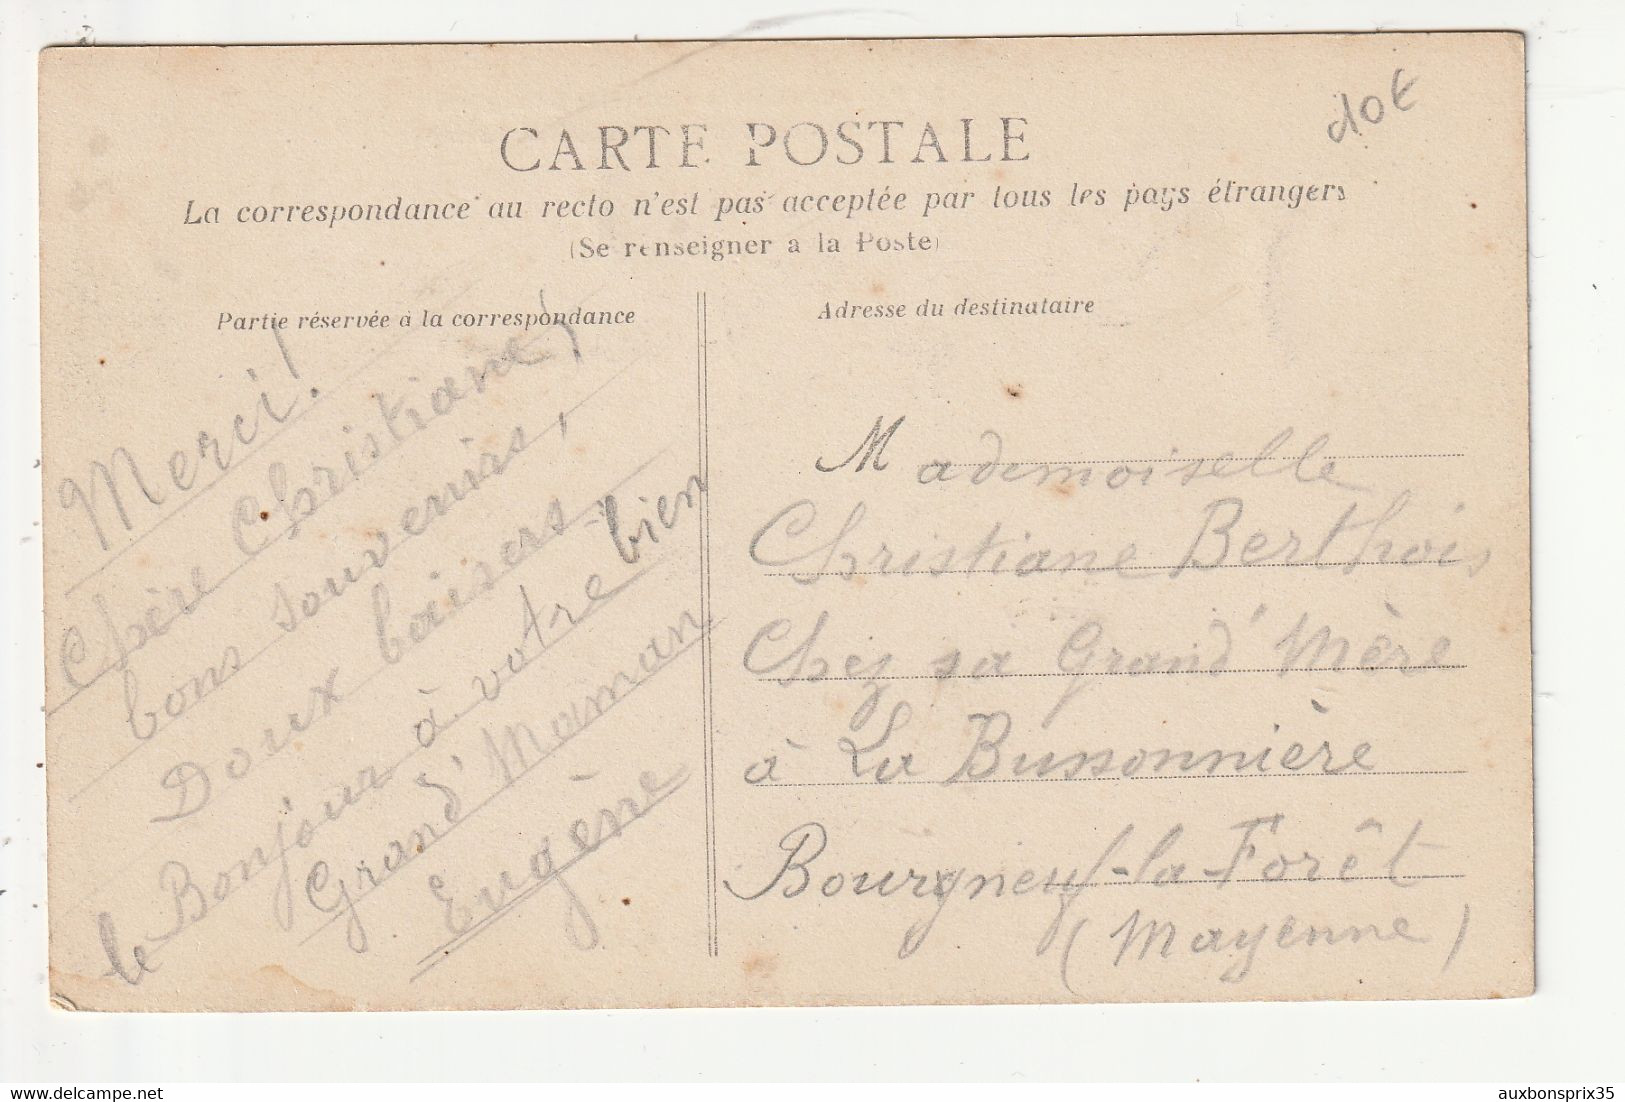 10€
CARTE POSTALE
La correspondance au recto n'est pas acceptée par tous les pays étrangers
(Se renseigner à la Poste)
Partie réservée à la correspondance
Merci!
Chère Christiane,
bons souvenirs,
Doux baisers,
le Bonjour à votre bien
Grand'Maman
Eugène
Adresse du destinataire
Mademoiselle
Christiane Berthois
Chez sa Grand'Mère
à La Bussonnière
Bourgneuf-la-Forêt
(Mayenne)
delcampe.net
auxbonsprix35